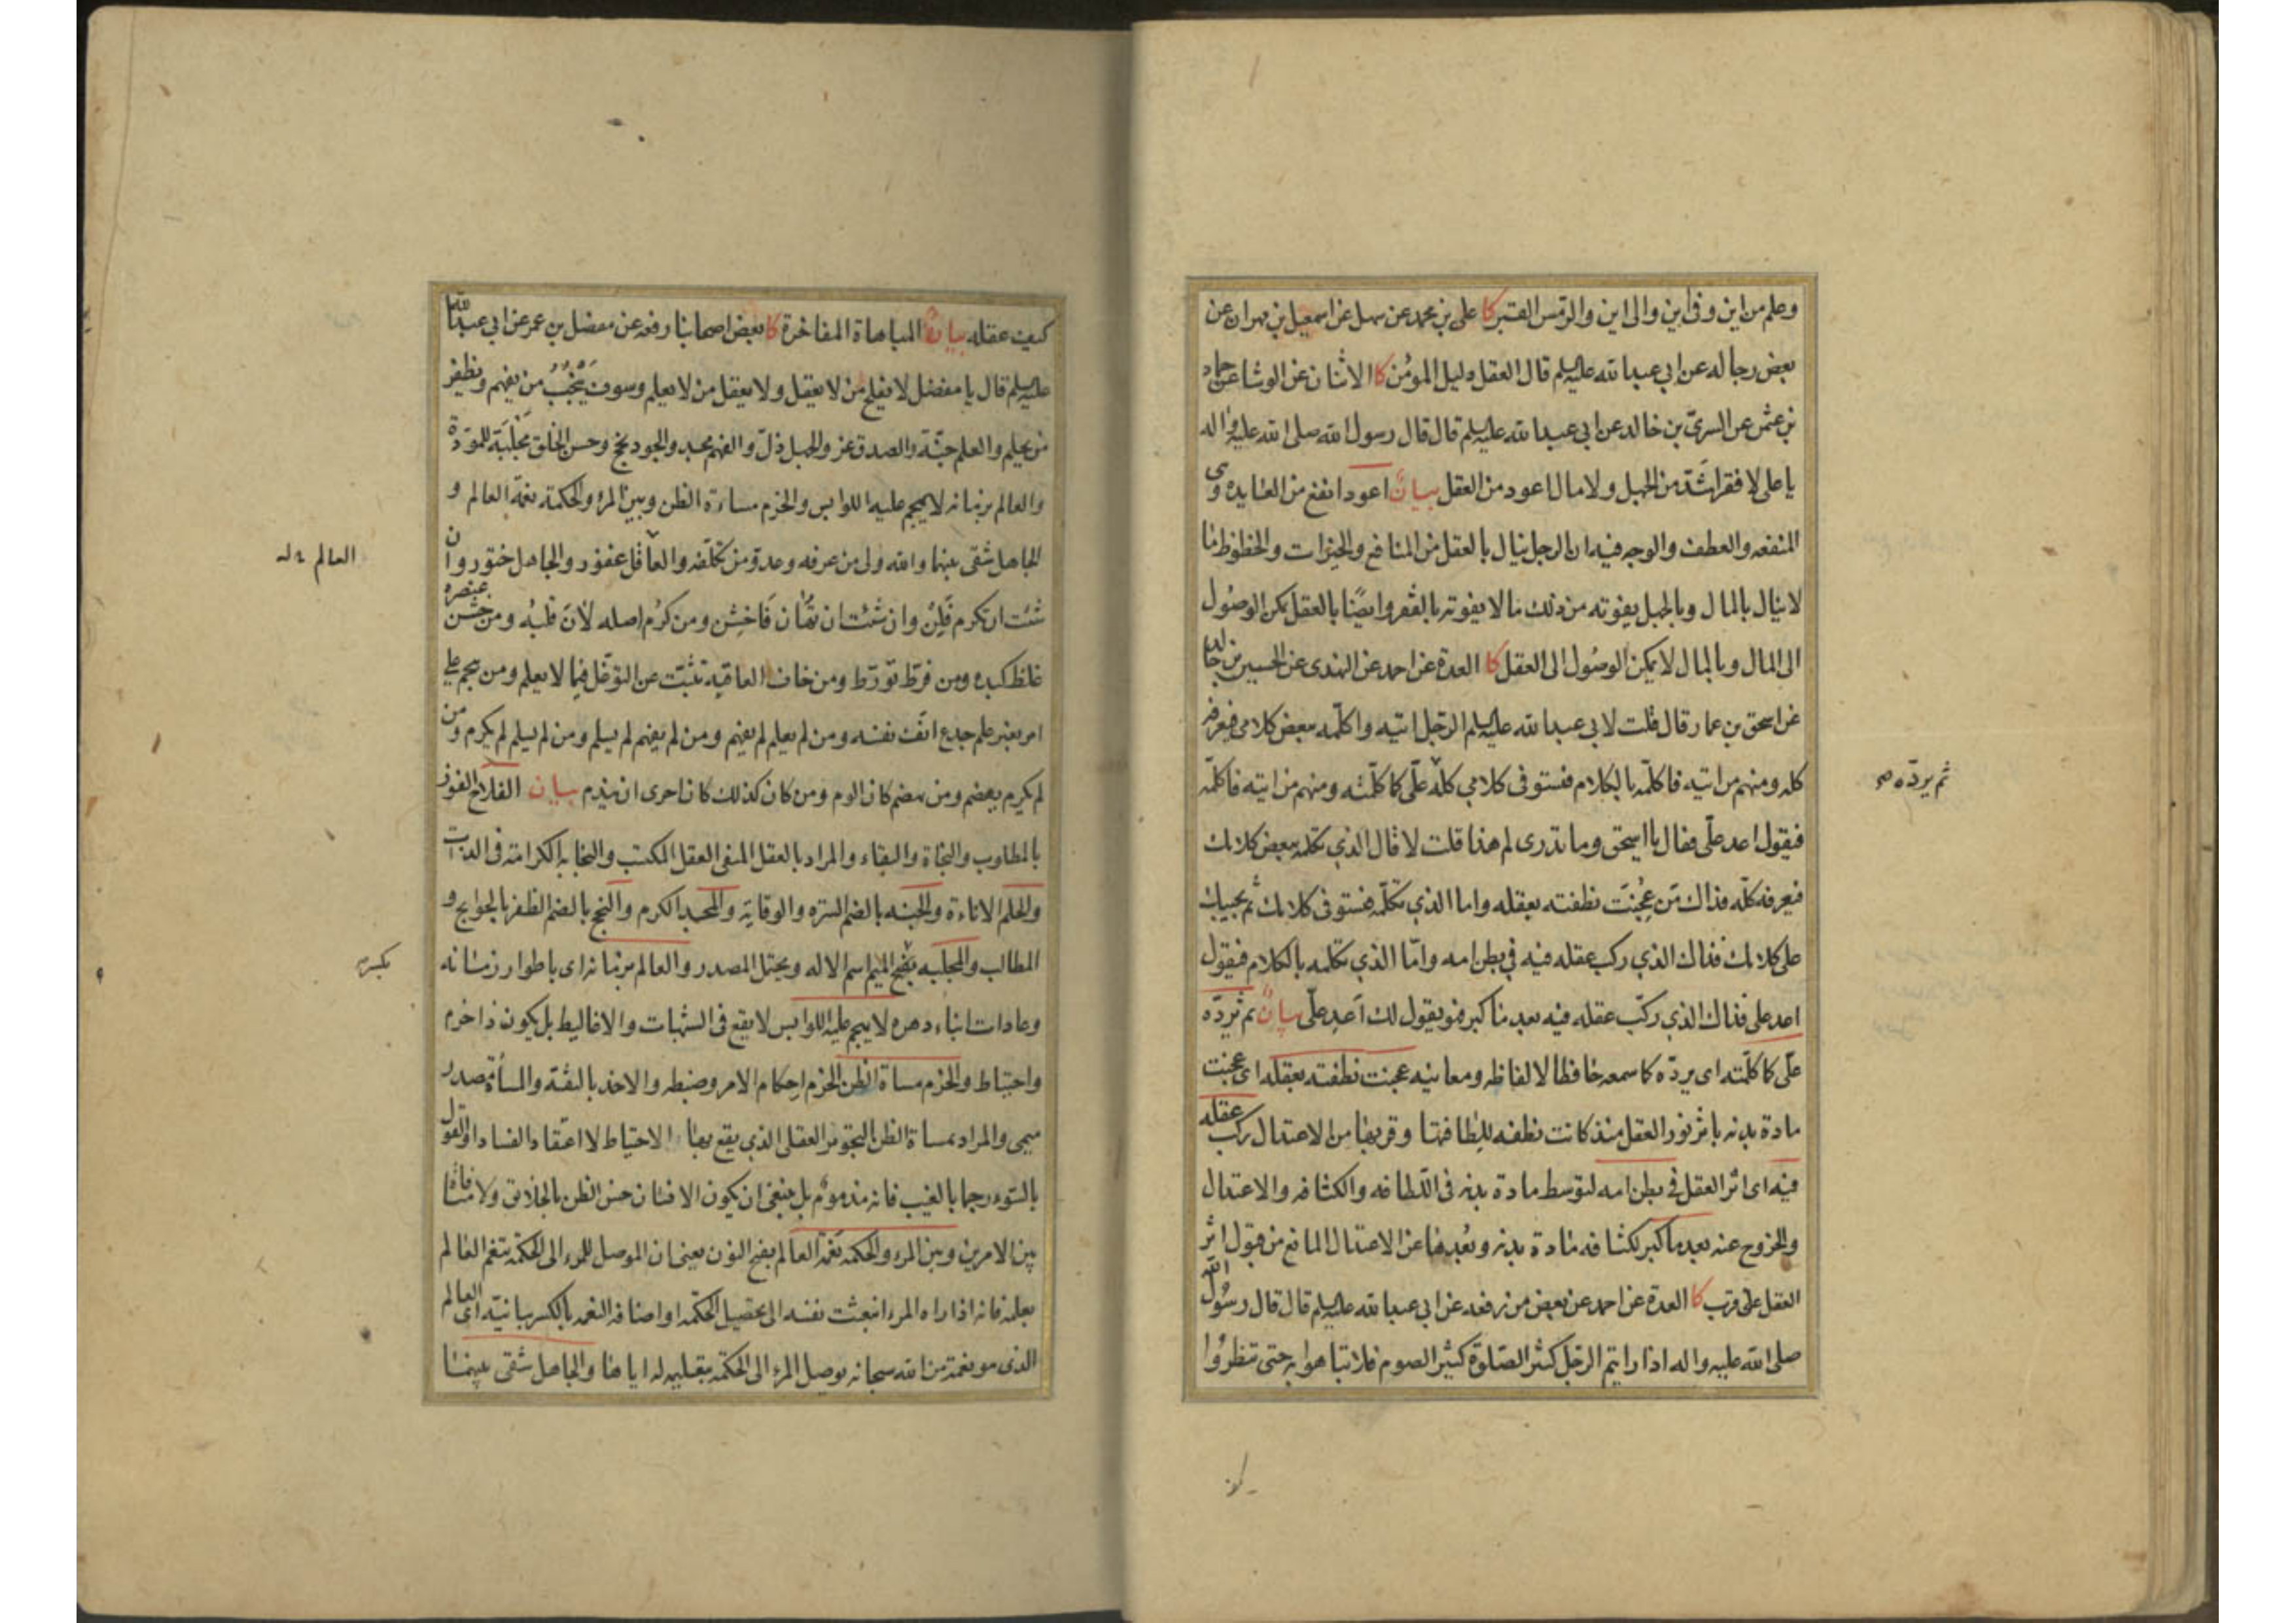 وعلم من اين وفى اين والى اين والرئيس القسر كا على بن محمد عن سهل عن اسمعيل بن مهران عن
بعض رجاله عن ابي عبدالله عليه السلم قال العقل دليل المؤمن كا الاثنان عن الوشا عن حماد
بن عثمن عن السرىّ بن خالد عن ابي عبدالله عليه السلم قال قال رسول الله صلى الله عليه واله
يا على لا فقر اشدّ من الجهل ولا مال اعود من العقل بيان اعود انفع من العايده وهى
المنفعه والعطف والوجه فيه ان الرجل ينال بالعقل من المنافع والخيرات والحظوظ ما
لا ينال بالمال وبالجهل يفوته من ذلك ما لا يفوته بالفقر وايضًا بالعقل يمكن الوصول
الى المال وبالمال لا يمكن الوصول الى العقل كا العدة عن احمد عن النهدى عن الحسين بن خالد
عن اسحق بن عمار قال قلت لابي عبدالله عليه السلم الرجل اتيه واكلّمه ببعض كلامى فيعرفه
كله ومنهم من اتيه فاكلّمه بالكلام فيستوفى كلامي كلّه
ثم يردّه صح
علّى كما كلّمته ومنهم من اتيه فاكلّمه
فيقول اعد علّى فقال يا اسحق وما تدرى لم هذا قلت لا قال الذي تكلمه ببعض كلامك
فيعرفه كلّه فذاك من عُجِنَت نطفته بعقله واما الذي تكلّمه فيستوفى كلامك ثم يجيبك
على كلامك فذاك الذي ركب عقله فيه في بطن امه وامّا الذي تكلمه بالكلام فيقول
اعد على فذاك الذي ركّب عقله فيه بعد ما كبر فهو يقول لك اَعِد علّى بيان ثم يردّه
علّى كما كلّمته اى يردّه كما سمعه حافظا لالفاظه ومعانيه عجنت نطفته بعقله اى عجنت
مادة بدنه باثر نور العقل منذ كانت نطفه للطافتها وقربها من الاعتدال ركب عقله
فيه اى اثر العقل في بطن امه لتوسط مادة بدنه فى اللطافه والكثافه والاعتدال
والخروج عنه بعد ما كبر لكثافه مادة بدنه وبُعدها عن الاعتدال المانع من قبول اثر
العقل على قرب كا العدة عن احمد عن بعض من رفعه عن ابي عبدالله عليه السلم قال قال رسُول الله
صلى الله عليه واله اذا رايتم الرجل كثير الصلوة كثير الصوم فلا تباهوا به حتى تنظروا
كيف عقله بيان المباهاة المفاخرة كا بعض اصحابنا رفعه عن مفضل بن عمر عن ابي عبدالله
عليه السلم قال يا مفضل لا يفلح من لا يعقل ولا يعقل من لا يعلم وسوف يَنْجُبُ من يفهم ويظفر
من يحلم والعلم جنّة والصدق عز والجهل ذلّ والفهم مجد والجود نجح وحسن الخلق مَجْلَبَة للمودّة
والعالم بزمانه لا يهجم عليه اللوابس والحزم مساءة الظن وبين المرء والحكمة نعمة العالم و
الجاهل شقى بينهما والله ولى من عرفه وعدوّ من تكلّفه والعاقل غفور والجاهل ختور وان
العالم
شئت ان تكرم فَلِنْ وان شئت ان تُهان فَاخشِن ومن كرُم اصله لَانَ قلبُه ومن خشن عنصره
غلظ كبده ومن فرّط تورّط ومن خاف العاقبة تثبّت عن التوغّل فيما لا يعلم ومن هجم على
امر بغير علم جدع انف نفسه ومن لم يعلم لم يفهم ومن لم يفهم لم يسلم ومن لم يسلم لم يكرم ومن
لم يكرم يهضم ومن يهضم كان الوم ومن كان كذلك كان احرى ان يندم بيان الفلاح الفوز
بالمطلوب والنجاة والبقاء والمراد بالعقل المنفى العقل المكتسب والنجابه الكرامة فى الذات
والحلم الاناءة والجنه بالضم الستره والوقاية والمجد الكرم والنجح بالضم الظفر بالحوايج و
المطالب والمجلبه بفتح الميم اسم الاله ويحتمل المصدر والعالم بزمانه اى باطوار زمانه
بكسر
وعادات ابناء دهره لا يهجم عليه اللوابس لا يقع فى الشبهات والاغاليط بل يكون ذا حزم
واحتياط والحزم مساءة الظن الحزم احكام الامر وضبطه والاخذ بالثقة والمساءة مصدر
ميمى والمراد بمساءة الظن التجويز العقلى الذي يقع بها الاحتياط لا اعتقاد الفساد او القول
بالسّوء رجما بالغيب فانه مذموم بل ينبغى ان يكون الانسان حسن الظن بالخلايق ولا منافاة
بين الامرين وبين المرء والحكمه نَعمة العالم بفتح النون يعنى ان الموصل للمرء الى الحكمة تنعم العالم
بعلمه فانه اذا راه المرء انبعثت نفسه الى تحصيل الحكمه او اضافه النعمه بالكسر بيانيّة اى العالم
الذى هو نعمة من الله سبحانه يوصل المرء الى الحكمة بتعليمه له اياها والجاهل شقى بينهما